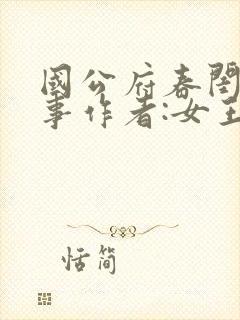 國公府春閨
事作者:女王
恬簡